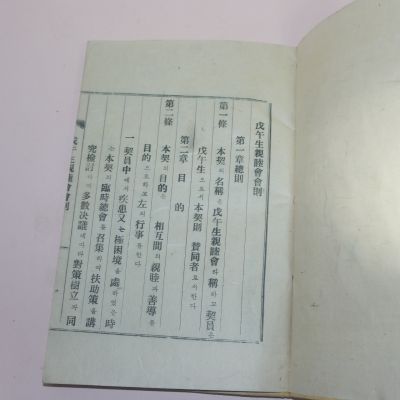 戊午生親睦會會則
第一章 總則
第一條 本契의 名稱은 戊午生親睦會라 稱하고 契員은
戊午生으로써 本契則 贊同者로써 한다
第二章 目的
第二條 本契의 目的은 相互間의 親睦과 善導를
目的으로하고 左의 行事를 한다
一 契員中에서 疾患又는 極困境을 處하였을 時
는 本契의 臨時總會를 召集하여 扶助策을 講
究檢討하여 多數決議에 따라 對策樹立과 同
戊午生親睦會會則